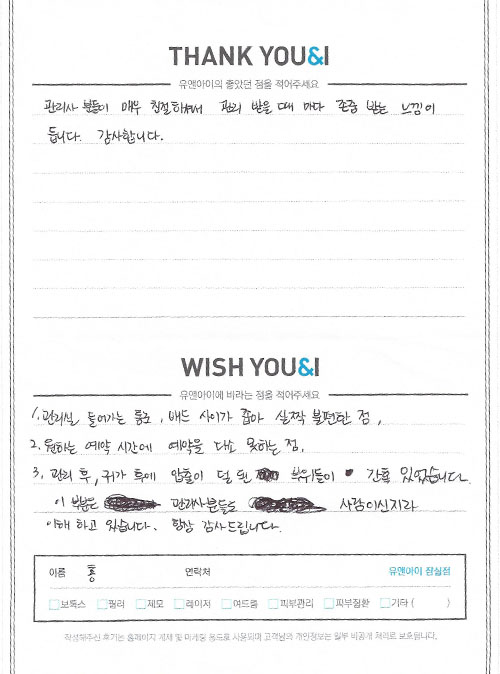 THANK YOU&I
유앤아이의 좋았던 점을 적어주세요
관리사 분들이 매우 친절하셔서 관리 받을 때 마다 존중 받는 느낌이
듭니다. 감사합니다.
WISH YOU&I
유앤아이에 바라는 점을 적어주세요
1. 관리실 들어가는 통로, 배드 사이가 좁아 살짝 불편한 점,
2. 원하는 예약 시간에 예약을 다소 못하는 점,
3. 관리 후, 귀가 후에 압출이 덜 된 부위들이 간혹 있었습니다.
이 부분은 관리사분들도 사람이신지라
이해 하고 있습니다. 항상 감사드립니다.
이름 홍 연락처 유앤아이 잠실점
보톡스 필러 제모 레이저 여드름 피부관리 피부질환 기타 ( )
작성해주신 후기는 홈페이지 게재 및 마케팅 용도로 사용되며 고객님의 개인정보는 일부 비공개 처리로 보호됩니다.